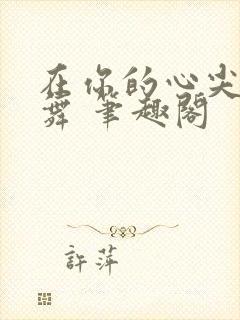 在你的心尖
舞 笔趣阁
許萍